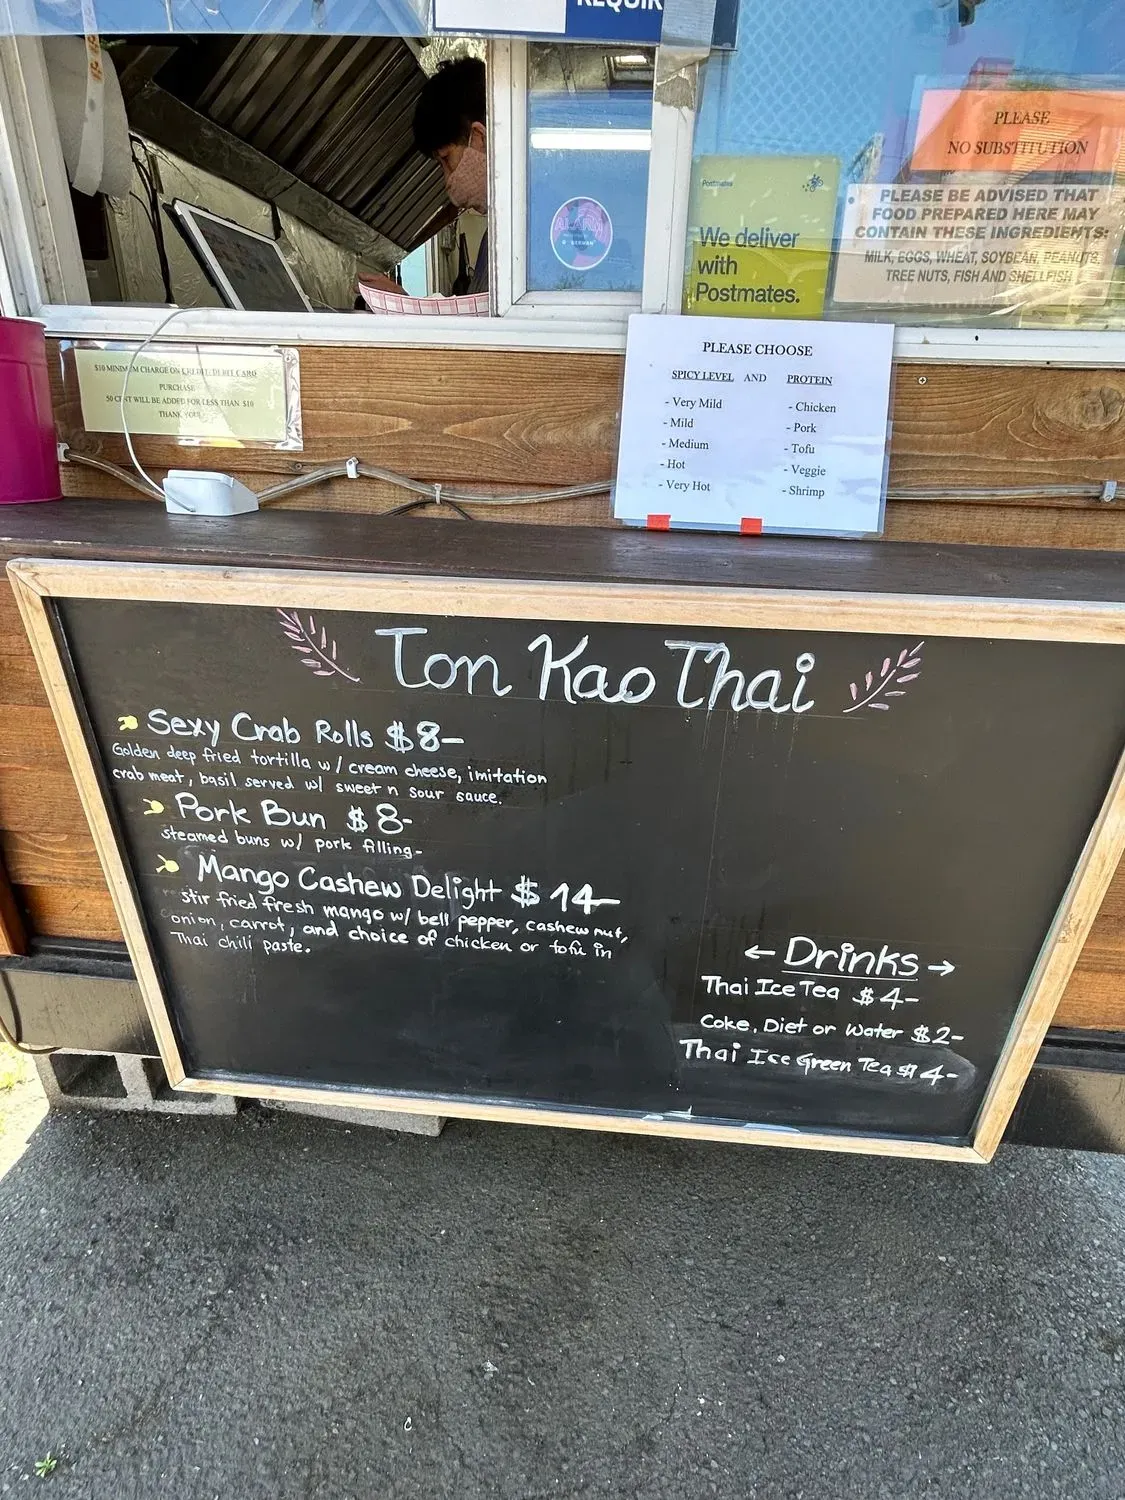 REQUIR
PLEASE
NO SUBSTITUTION
Postmates
We deliver
with
Postmates.
PLEASE BE ADVISED THAT
FOOD PREPARED HERE MAY
CONTAIN THESE INGREDIENTS:
MILK, EGGS, WHEAT, SOYBEAN, PEANUTS,
TREE NUTS, FISH AND SHELLFISH
$10 MINIMUM CHARGE ON CREDIT/DEBIT CARD
PURCHASE
50 CENT WILL BE ADDED FOR LESS THAN $10
THANK YOU!
PLEASE CHOOSE
SPICY LEVEL AND PROTEIN
- Very Mild - Chicken
- Mild - Pork
- Medium - Tofu
- Hot - Veggie
- Very Hot - Shrimp
Ton Kao Thai
Sexy Crab Rolls $8-
Golden deep fried tortilla w/ cream cheese, imitation
crab meat, basil served w/ sweet n sour sauce.
Pork Bun $8-
steamed buns w/ pork filling-
Mango Cashew Delight $14-
stir fried fresh mango w/ bell pepper, cashew nut,
onion, carrot, and choice of chicken or tofu in
Thai chili paste.
← Drinks →
Thai Ice Tea $4-
Coke, Diet or Water $2-
Thai Ice Green Tea $4-